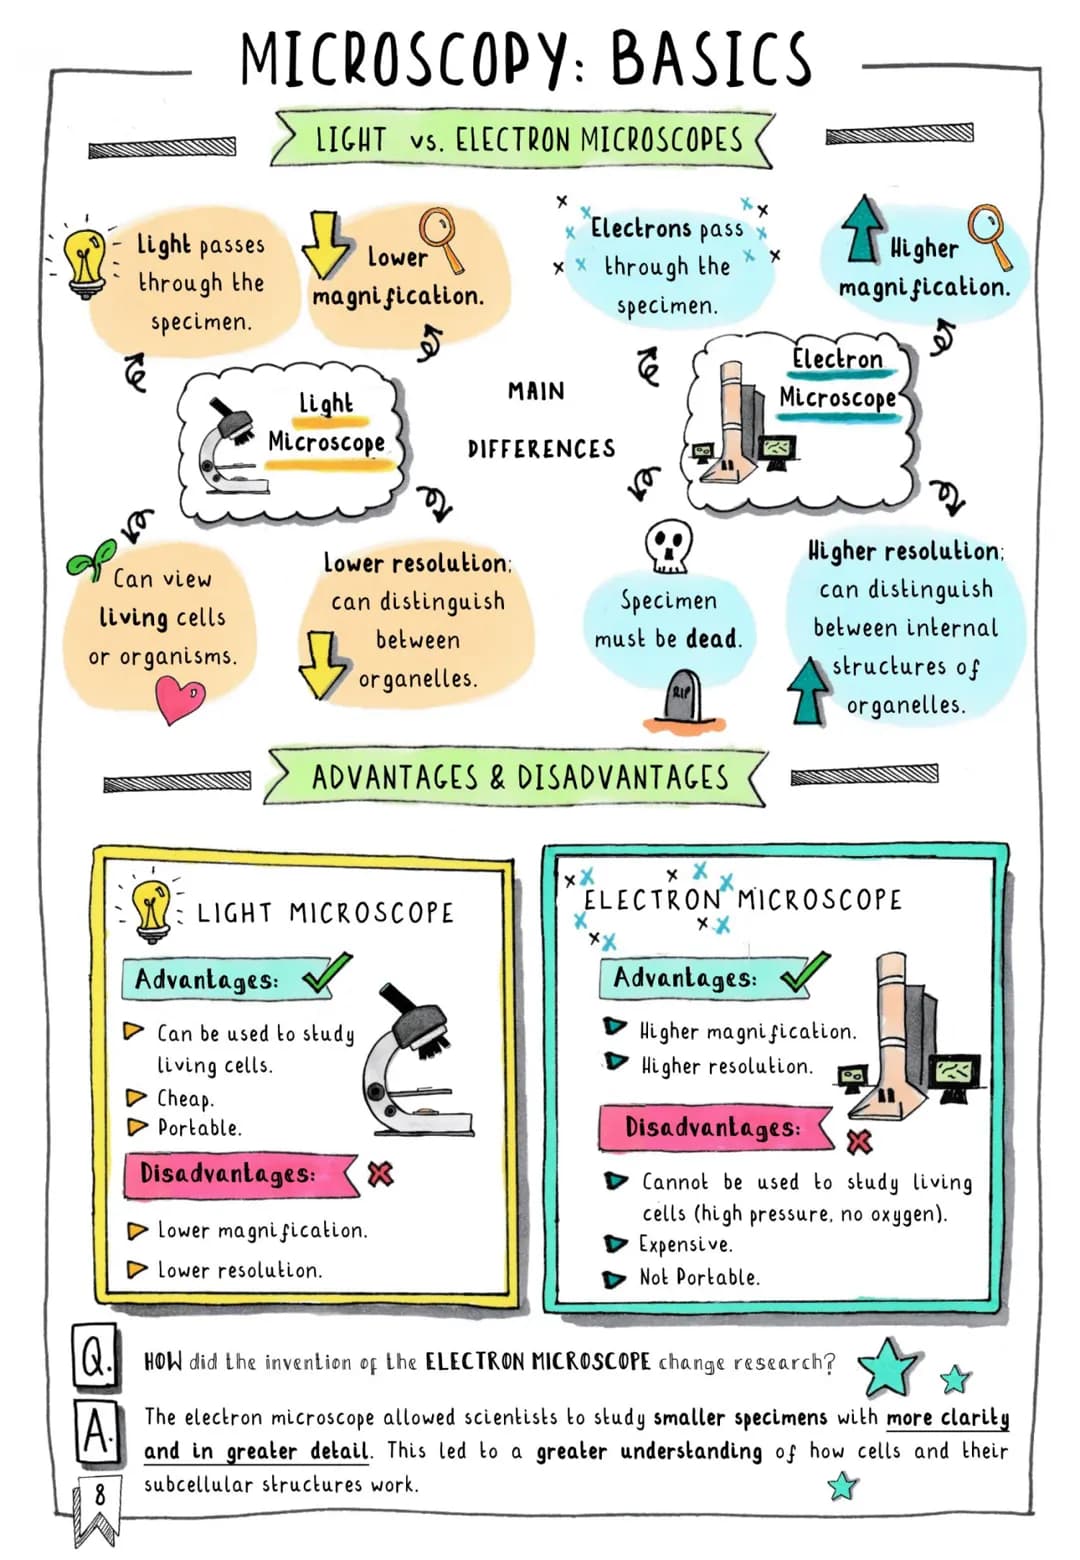 MICROSCOPY: BASICS
LIGHT vs. ELECTRON MICROSCOPES
Light passes
through the
specimen.
Lower
magnification.
Electrons pass
through the
specimen.
Higher
magnification.
Light
Microscope
MAIN
DIFFERENCES
Electron
Microscope
Can view
living cells
or organisms.
Lower resolution;
can distinguish
between
organelles.
Specimen
must be dead.
RIP
Higher resolution;
can distinguish
between internal
structures of
organelles.
ADVANTAGES & DISADVANTAGES
LIGHT MICROSCOPE
Advantages:
Can be used to study
living cells.
Cheap.
Portable.
Disadvantages:
Lower magnification.
Lower resolution.
ELECTRON MICROSCOPE
Advantages:
Higher magnification.
Higher resolution.
Disadvantages:
Cannot be used to study living
cells (high pressure, no oxygen).
Expensive.
Not Portable.
Q. HOW did the invention of the ELECTRON MICROSCOPE change research?
A. The electron microscope allowed scientists to study smaller specimens with more clarity
and in greater detail. This led to a greater understanding of how cells and their
subcellular structures work.
8